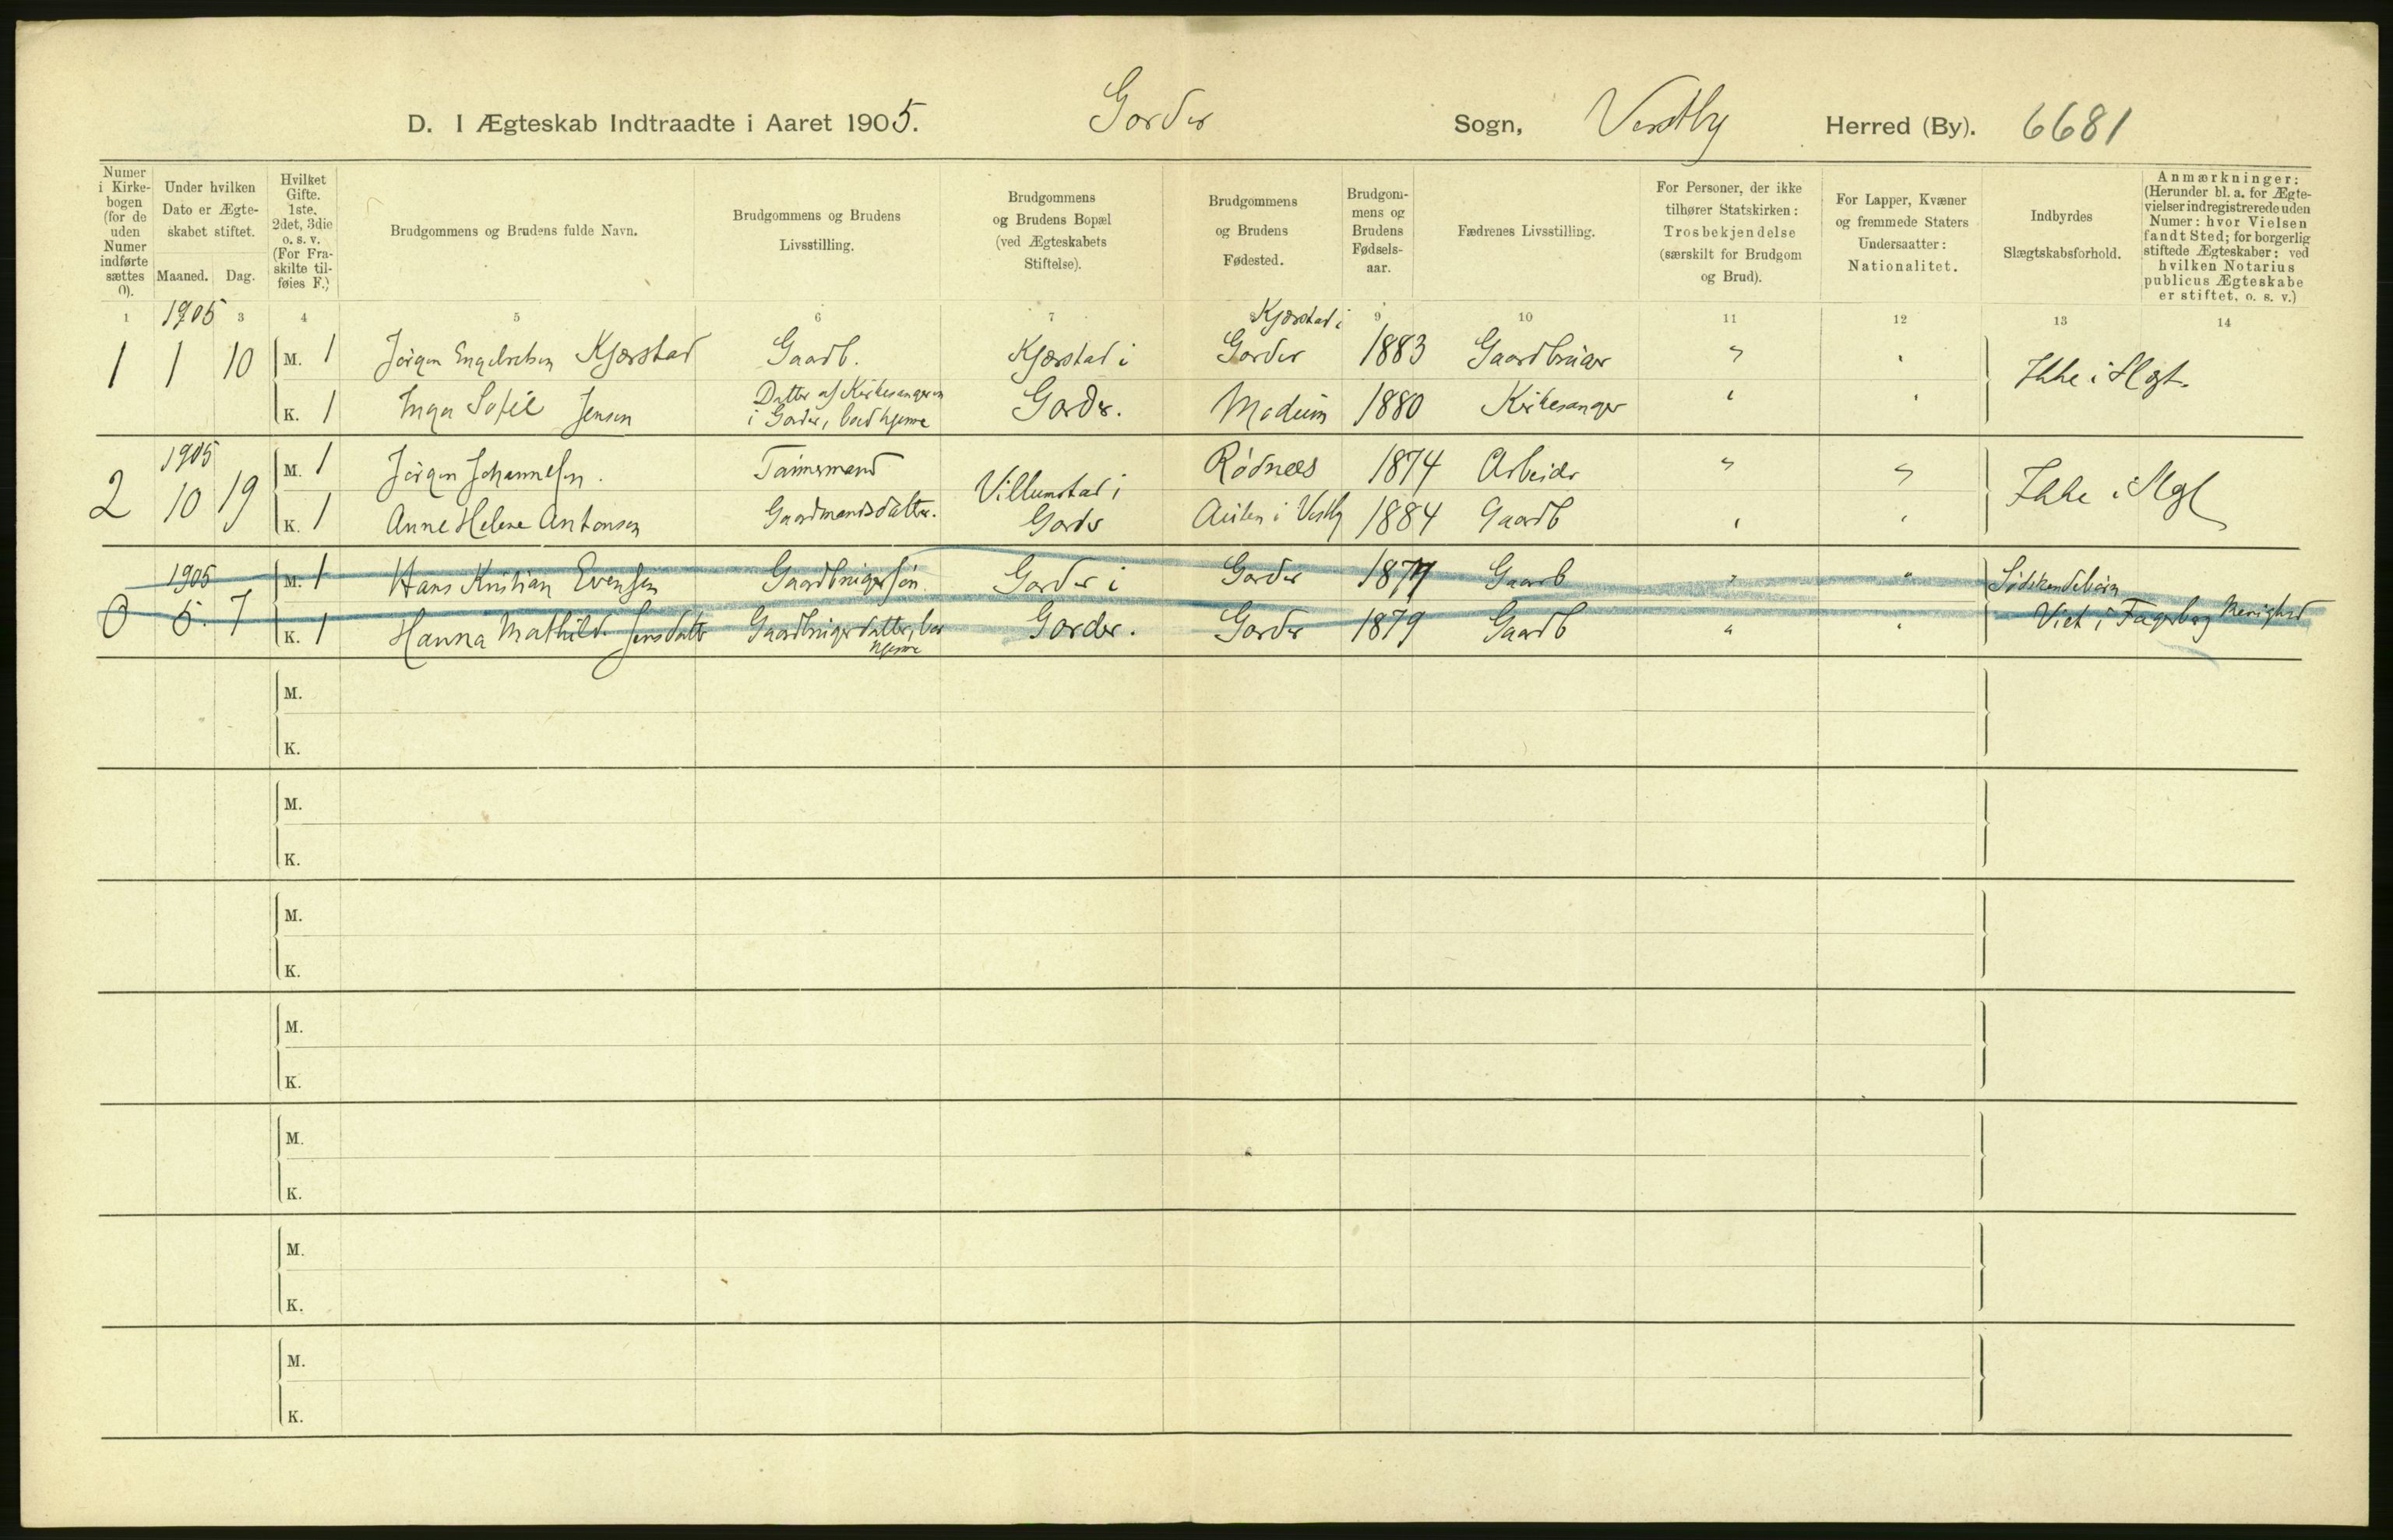 D. I Ægteskab Indtraadte i Aaret 1905. Garder Sogn, Vestby Herred (By). 6681
Numer i Kirkebogen (for de uden Numer indførte sættes 0).
Under hvilken Dato er Ægteskabet stiftet.
Maaned. Dag.
Hvilket Gifte. 1ste, 2det, 3die o. s. v. (For Fraskilte tilføies F.)
Brudgommens og Brudens fulde Navn.
Brudgommens og Brudens Livsstilling.
Brudgommens og Brudens Bopæl (ved Ægteskabets Stiftelse).
Brudgommens og Brudens Fødested.
Brudgommens og Brudens Fødselsaar.
Fædrenes Livsstilling.
For Personer, der ikke tilhører Statskirken: Trosbekjendelse (særskilt for Brudgom og Brud).
For Lapper, Kvæner og fremmede Staters Undersaatter: Nationalitet.
Indbyrdes Slægtskabsforhold.
Anmærkninger: (Herunder bl. a. for Ægtevielser indregistrerede uden Numer: hvor Vielsen fandt Sted; for borgerlig stiftede Ægteskaber: ved hvilken Notarius publicus Ægteskabe er stiftet, o. s. v.)
1 3 4 5 6 7 9 10 11 12 13 14
1905 Kjærstad i
1 1 10 M. 1 Jørgen Engebretsen Kjærstad Gaardb. Kjærstad i Garder 1883 Gaardbruger " " Ikke i Slægt.
K. 1 Inga Sofie Jensen Datter af Kirkesangeren i Garder, boed hjemme Garder. Modum 1880 Kirkesanger " "
1905
2 10 19 M. 1 Jørgen Johannesen. Tømmermand Villumstad i Rødnæs 1874 Arbeider " " Ikke i Slgt
K. 1 Anne Helene Antonsen Gaardmandsdatter. Garder i Vestby 1884 Gaardb " "
1905
0 5. 7 M. 1 Hans Kristian Evensen Gaardbrugersøn Garder i Garder 1877 Gaarb " " Sødskendebørn
K. 1 Hanna Mathilde Jensdatter Gaardbrugerdatter, hjemme Garder. Garder 1879 Gaardb " " Viet i Fagerborg Menighed
M.
K.
M.
K.
M.
K.
M.
K.
M.
K.
M.
K.
M.
K.